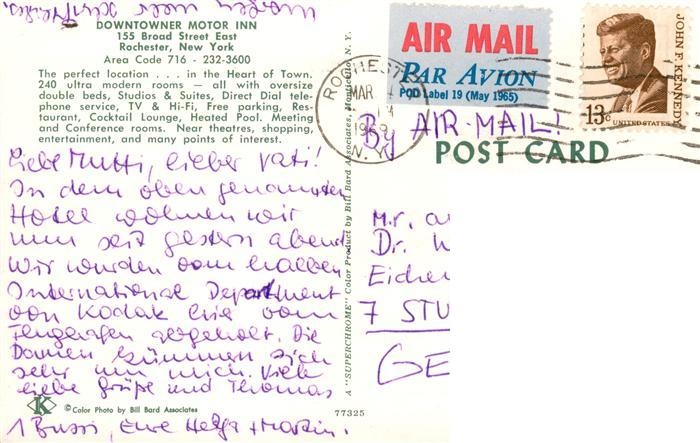 DOWNTOWNER MOTOR INN
155 Broad Street East
Rochester, New York
Area Code 716 - 232-3600
The perfect location . . . in the Heart of Town.
240 ultra modern rooms — all with oversize
double beds, Studios & Suites, Direct Dial tele-
phone service, TV & Hi-Fi, Free parking, Res-
taurant, Cocktail Lounge, Heated Pool. Meeting
and Conference rooms. Near theatres, shopping,
entertainment, and many points of interest.
Liebe Mutti, lieber Vati!
In dem oben genannten
Hotel wohnen wir
nun seit gestern abend
Wir wurden vom
International Department
von Kodak hier vom
Flughafen abgeholt. Die
Damen kümmern sich
sehr um mich. Viele
liebe Grüße und Thomas
1 Bussi, Eure Helga + Martin.
K
© Color Photo by Bill Bard Associates
77325
A "SUPERCHROME" Color Product by Bill Bard Associates, Monticello, N. Y.
AIR MAIL
PAR AVION
POD Label 19 (May 1965)
JOHN F. KENNEDY
13c
UNITED STATES
ROCHESTER
MAR
1969
N. Y.
By AIR-MAIL!
POST CARD
Mr.
Dr.
Eiche
7 STU
GE